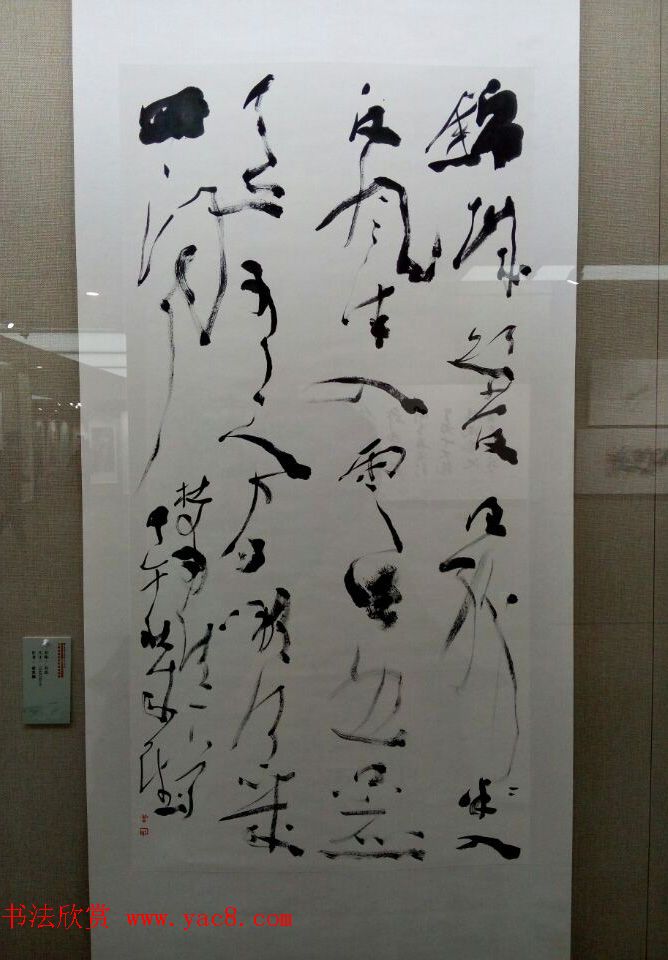 錦城絲管日紛々半入
江風半入雲此曲只應
天上有人間能得幾
回聞
杜甫詩一首
甲午秋
书法欣赏 www.yac8.com